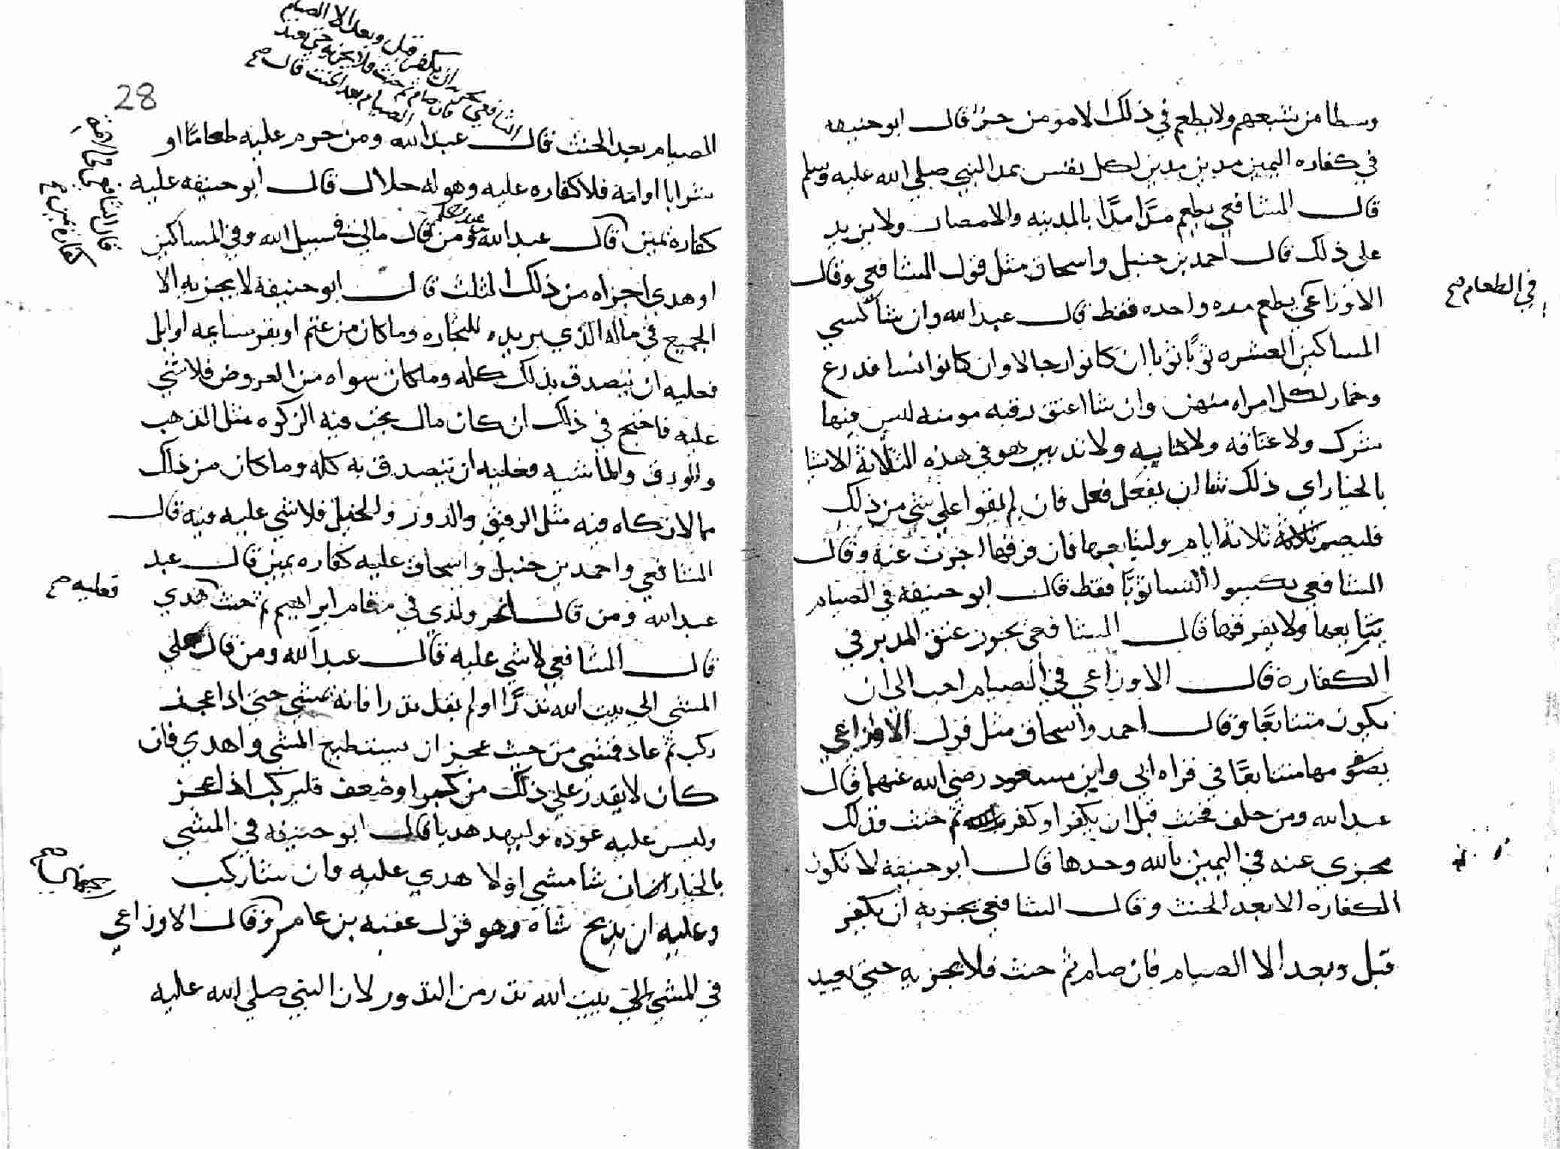 وسطا من شبعهم ولا يطعم في ذلك الا مومن حرا قال ابو حنيفه
في كفاره اليمين مدين مدين لكل نفس بمد النبي صلى الله عليه وسلم
قال الشافعي يطعم مدا مدا بالمدينه والامصار ولا يزيد
على ذلك قال احمد بن حنبل واسحاق مثل قول الشافعي وقال
الاوزاعي يطعم مده واحده فقط قال عبد الله وان شا كسي
المساكين العشره ثوبا ثوبا ان كانوا رجالا وان كانوا نسا فدرع
وخمار لكل امراه منهن وان شا اعتق رقبه مومنه ليس فيها
شرك ولا عتاقه ولا كتابيه ولا تدبير هو في هذه الثلاثة الاشيا
بالخيار اي ذلك شا ان يفعل فعل فان لم يقوا على شي من ذلك
فليصم ثلاثة ايام وليتابعها فان فرقها اجزت عنه وقال
الشافعي يكسوا النسا ثوبا فقط قال ابو حنيفة في الصيام
يتابعها ولا يفرقها قال الشافعي يجوز عتق المدبر في
الكفارة قال الاوزاعي في الصيام احب الى ان
يكون متتابعا وقال احمد واسحاق مثل قول الاوزاعي
يصومها متتابعا في قراه ابي وابن مسعود رضي الله عنهما قال
عبد الله ومن حلف فحنث قبل ان يكفر او كفر ثم حنث فذلك
مجزي عنه في اليمين بالله وحدها قال ابو حنيفة لا تكون
الكفاره الا بعد الحنث وقال الشافعي يجزيه ان يكفر
قبل وبعد الا الصيام فان صام ثم حنث فلا يجزيه حتى يعيد
في الطعام صح
28
الشافعي يجزيه ان يكفر قبل وبعد الا الصيام
فان صام ثم حنث فلا يجزيه حتى يعيد
الصيام بعد الحنث قال صح
الصيام بعد الحنث قال عبد الله ومن حرم عليه طعاما او
شرابا او امة فلا كفاره عليه وهو له حلال قال ابو حنيفه عليه
كفاره يمين قال عبد الله ومن قال مالي في سبيل الله وفي المساكين
او هدي اجزاه من ذلك الثلث قال ابو حنيفة لا يجزيه الا
الجميع في ماله الذي يريده للتجاره وما كان من غنم او بقر سايمه او ابل
فعليه ان يتصدق بذلك كله وما كان سواه من العروض فلا شي
عليه فاحتج في ذلك ان كان مال يجب فيه الزكوه مثل الذهب
والورق والماشيه فعليه ان يتصدق به كله وما كان من ذلك
مما لا زكاه فيه مثل الرقيق والدور والخيل فلا شي عليه فيه قال
الشافعي واحمد بن حنبل واسحاق عليه كفاره يمين قال عبد
عبد الله ومن قال انحر ولدي في مقام ابراهيم ثم حنث هدي
قال الشافعي لا شي عليه قال عبد الله ومن قال علي
المشي الى بيت الله نذرا او لم يقل نذرا فانه يمشي حتى اذا عجز
ركب ثم عاد فمشي من حيث عجز ان يستطيع المشي واهدي فان
كان لا يقدر على ذلك من كبر او ضعف فليركب اذا عجز
وليس عليه عوده وليهد هديا قال ابو حنيفه في المشي
بالخيار ان شا مشي ولا هدي عليه وان شا ركب
وعليه ان يذبح شاة وهو قول عقبه بن عامر وقال الاوزاعي
في المشي الى بيت الله نذر من النذور لان النبي صلى الله عليه
كفارة يمين صح
فعليه صح